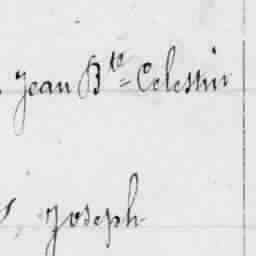 Jean Bte Celestin
Joseph